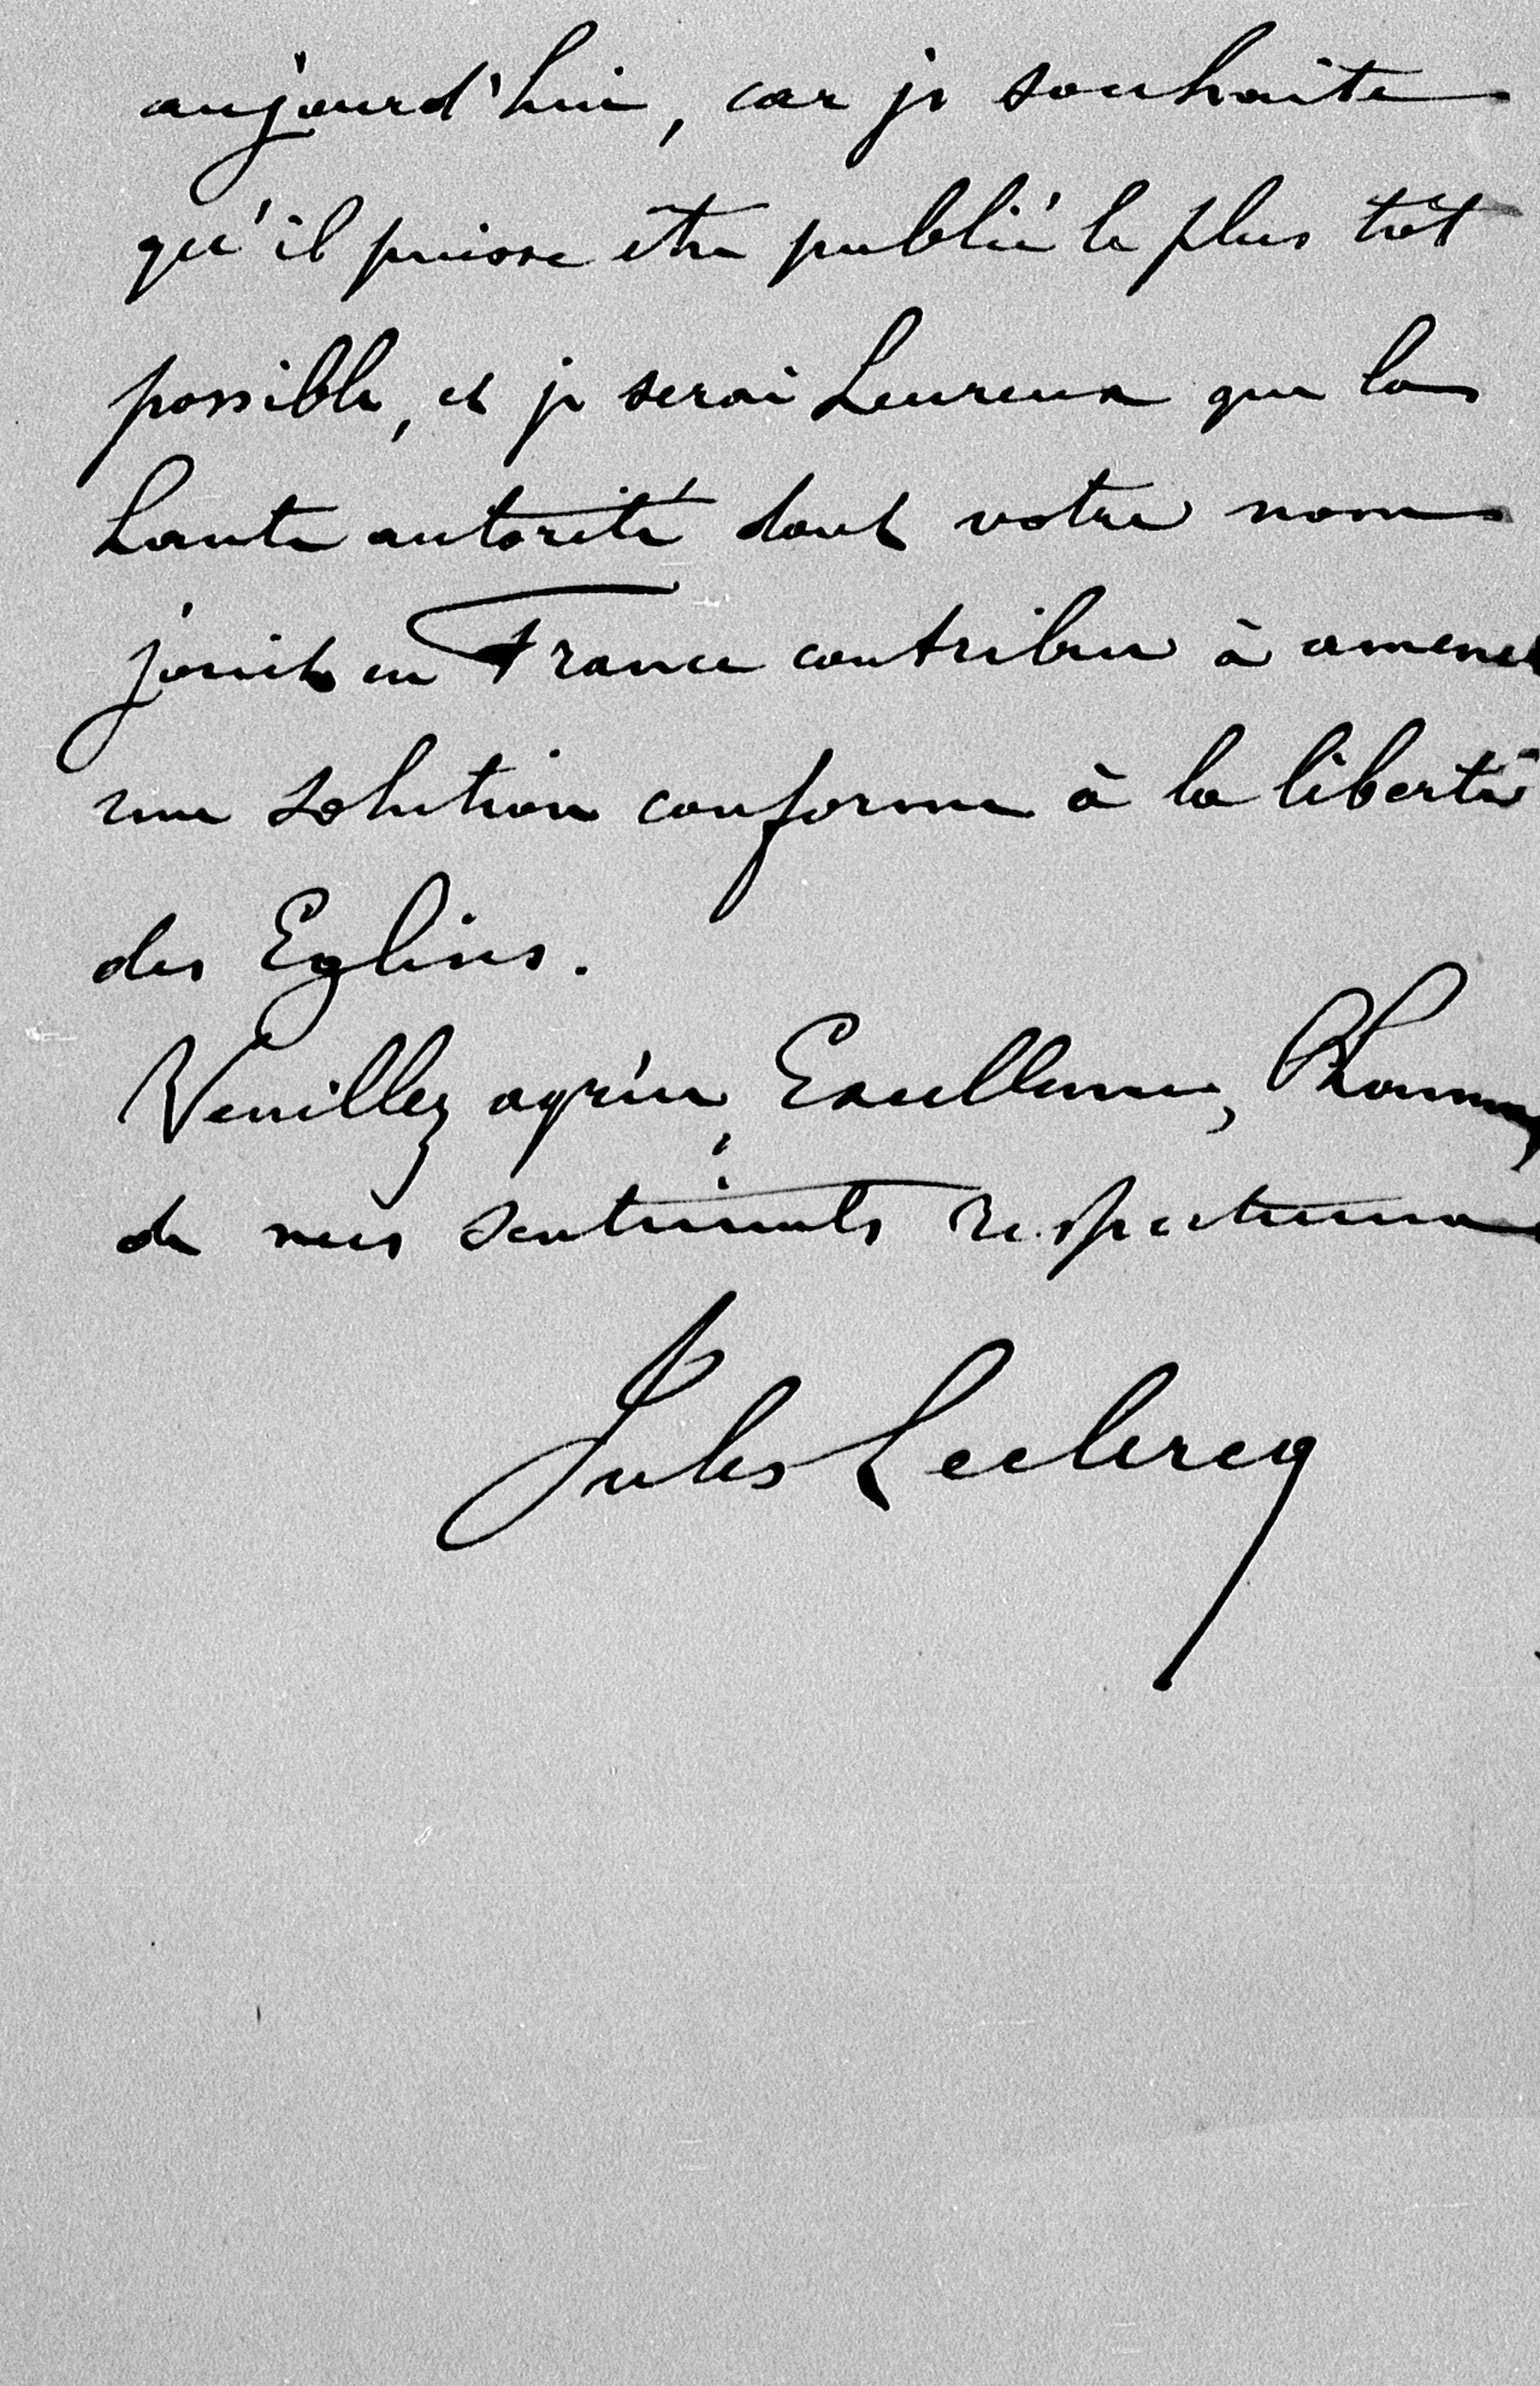 aujourd'hui, car je souhaite
qu'il puisse être publié le plus tôt
possible, et je serai heureux que la
haute autorité dont votre nom
jouit en France contribue à amener
une solution conforme à la liberté
des Eglises.
Veuillez agréer, Excellence, l'hommage
de mes sentiments respectueux
Jules Leclercq